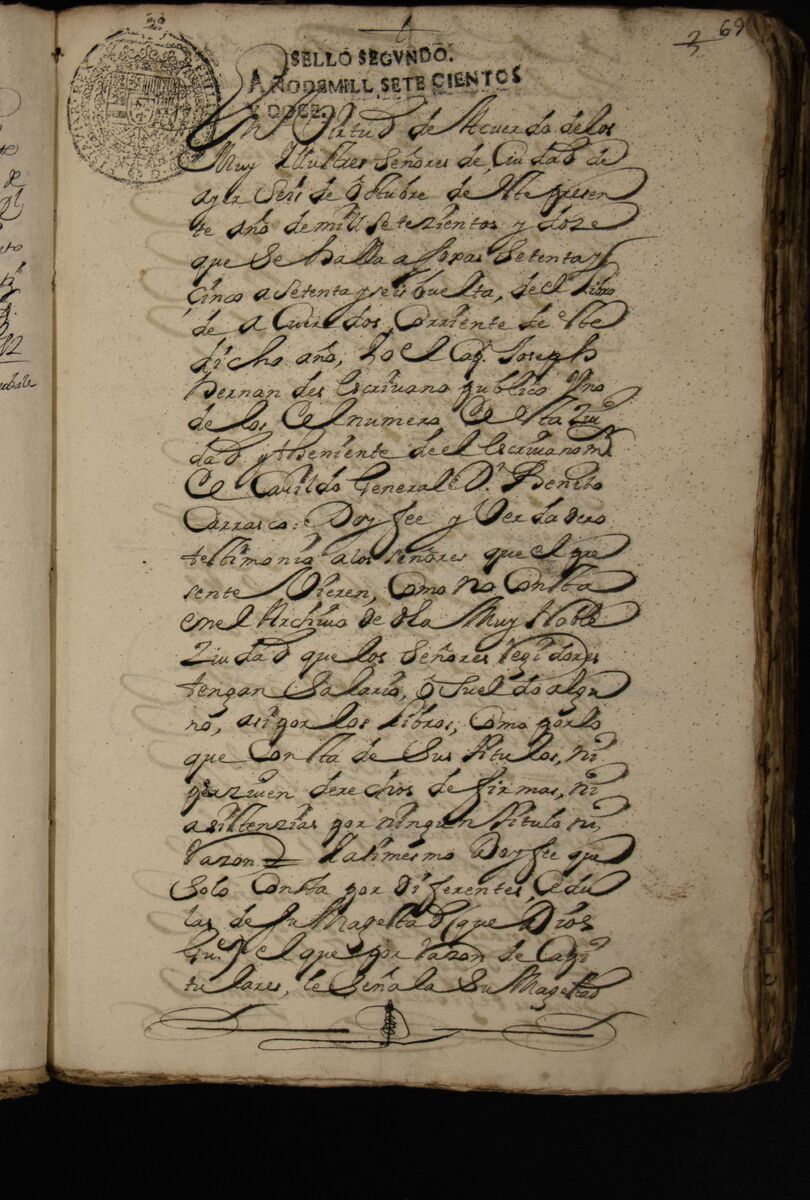 69
2
SELLO SEGVNDO.
AÑO DE MILL, SETECIENTOS
Y DOCE.
En Virtud de Acuerdo de los
Muy Illustres Señores de Ciudad de
ayer Seis de Octubre de este presen
te año de mill setezientos y doze
que Se halla a foxas Setenta y
Cinco a Setenta y seis buelta, de el libro
de a Cuerdos, Corriente de este
dicho año, Yo el Cap. Joseph
Hernandes Escrivano publico Vno
de los Del numero De esta Ziu
dad y theniente de el Escrivano m.
De Cavildo General D.n Benito
Carrasco: Doy fee y Verdadero
testimonio a los señores que el pre
sente Vieren, Como no Consta
en el Archivo de esta Muy Noble
Ziudad que los Señores Regidores
tengan Salario, o Sueldo algu
no, asi por los libros, Como por lo
que Consta de Sus titulos, ni
perziven derechos de firmas, ni
asistenzias por ningun titulo ni
razon Y asimesmo Doy fee que
Solo Consta por Diferentes, Cedu
las de su Magestad (que Dios
Gu.e) el que por razon de Capi
tulares, le Señala Su Magestad